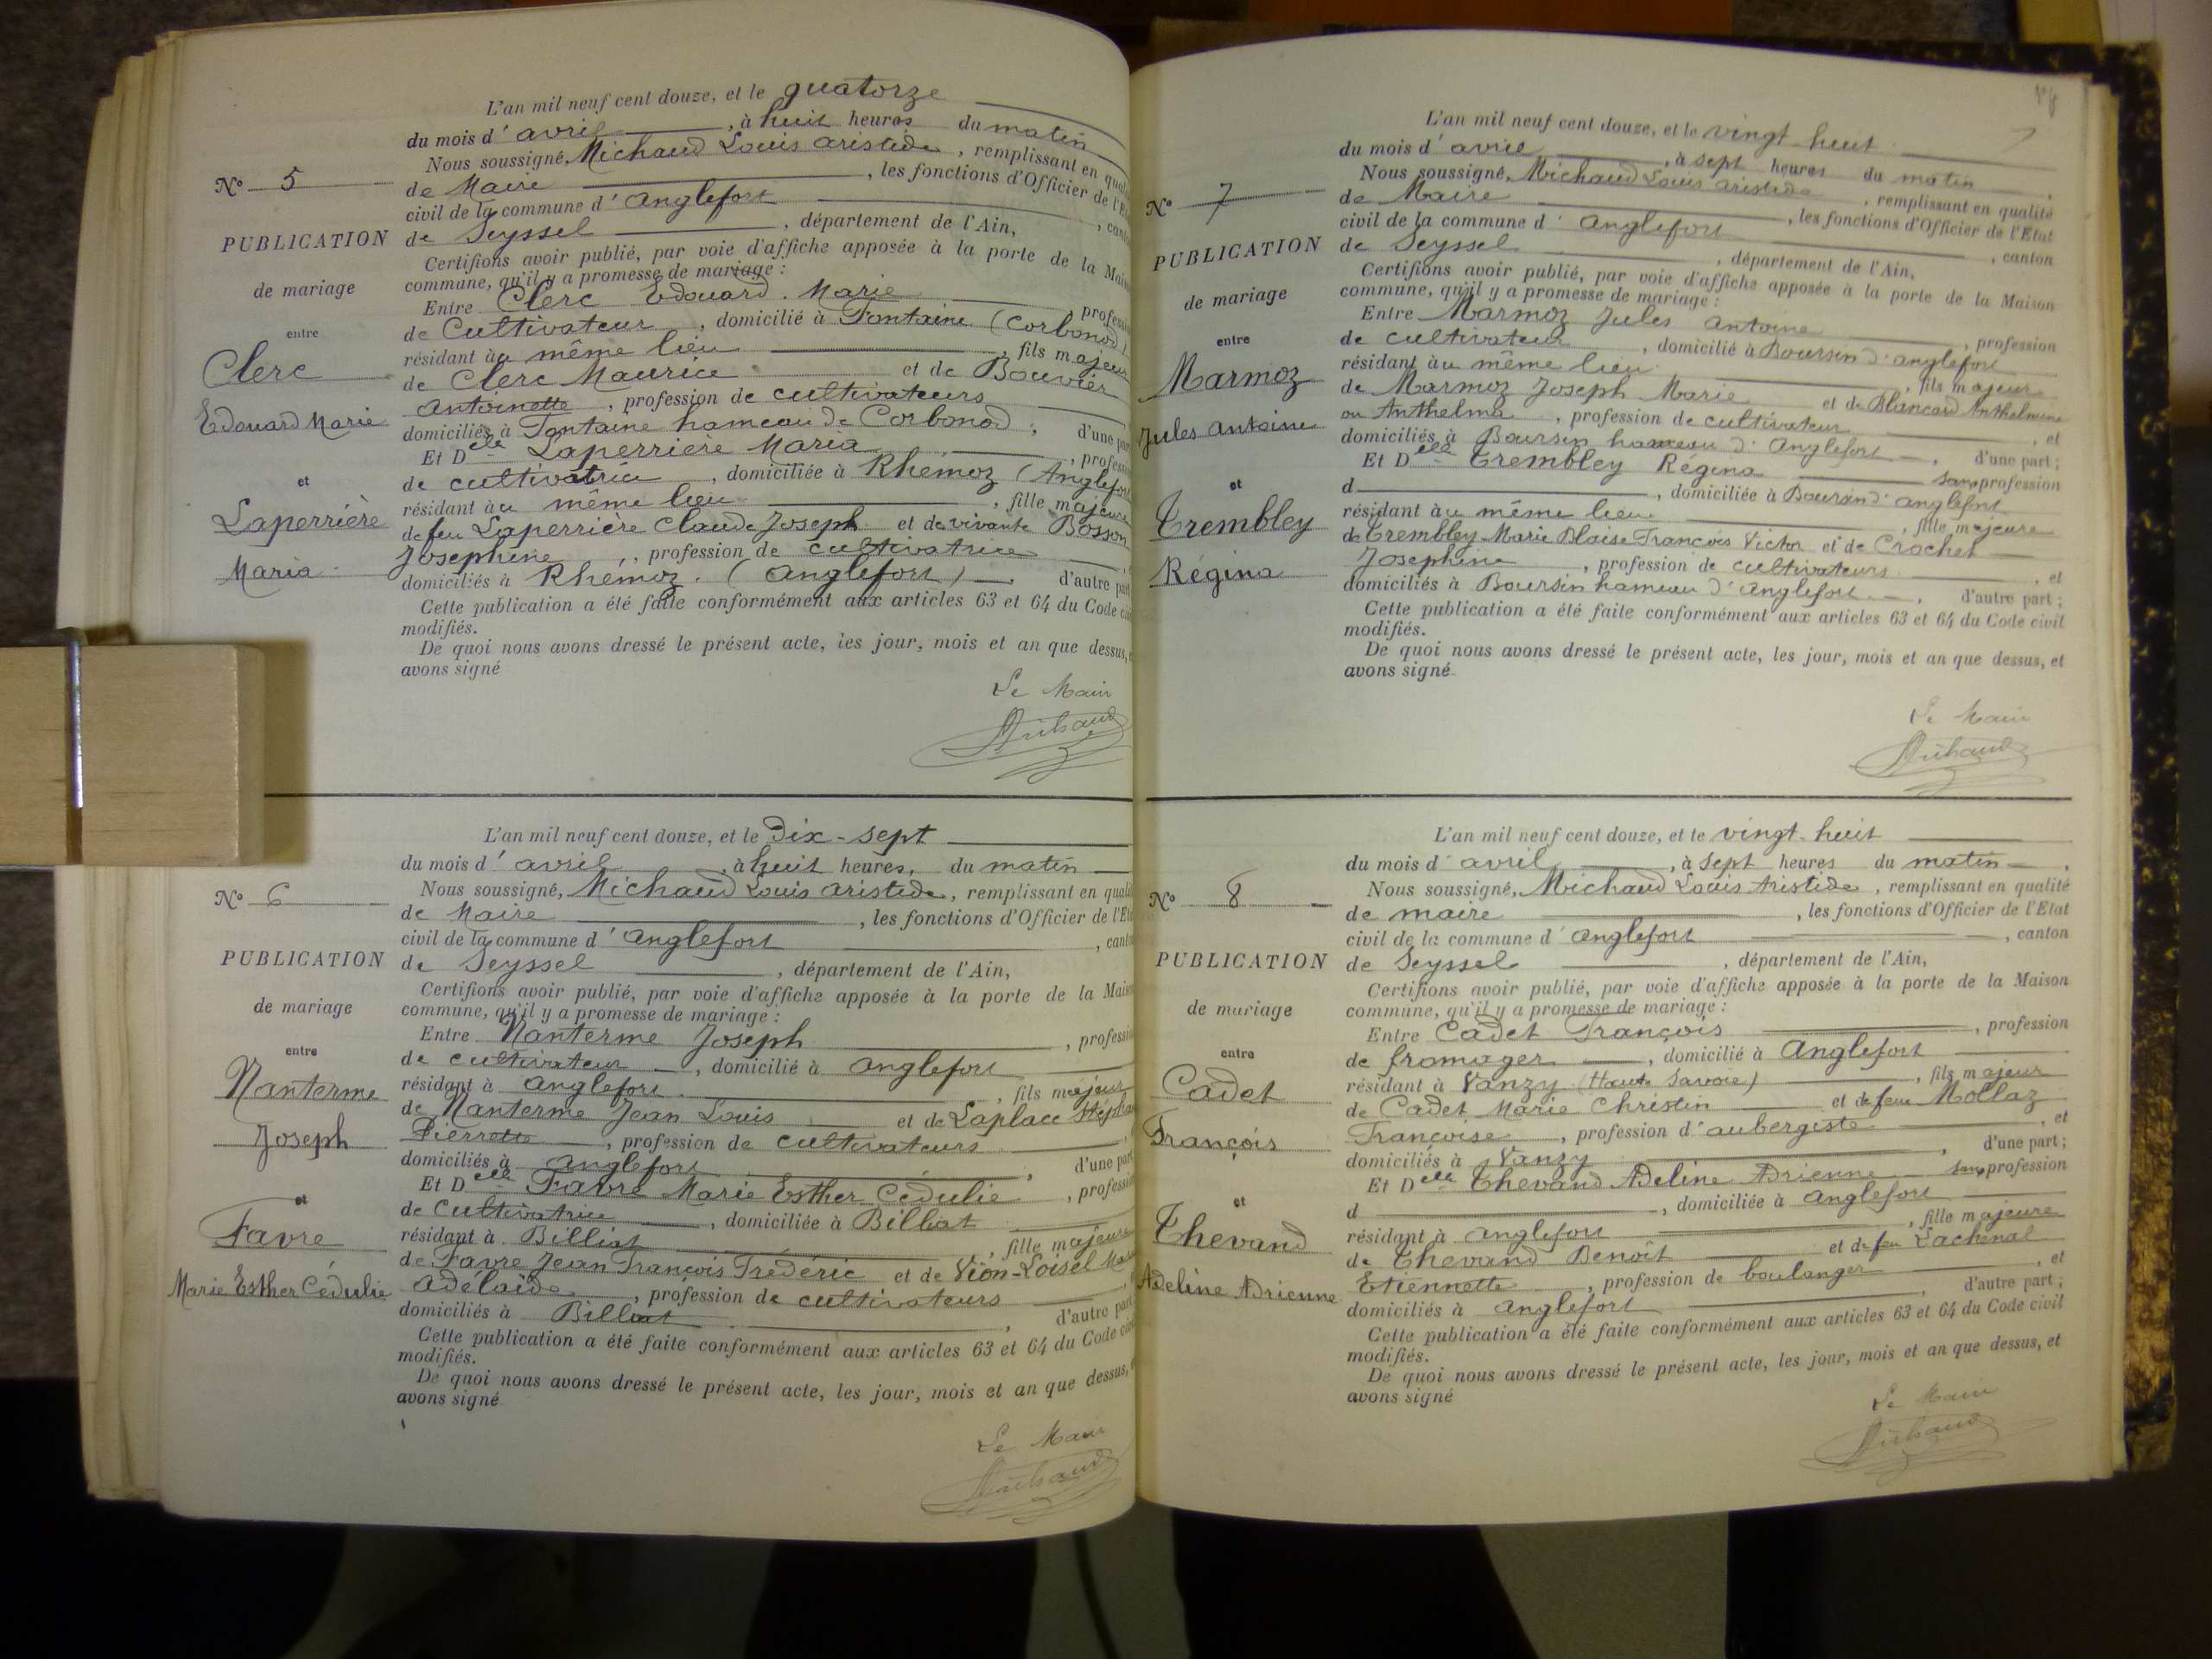 L'an mil neuf cent douze, et le quatorze
du mois d'avril, à huit heures du matin
Nous soussigné, Michaud Louis Aristide, remplissant en
de Maire, les fonctions d'Officier de
civil de la commune d'Anglefort
de Seyssel, département de l'Ain,
Certifions avoir publié, par voie d'affiche apposée à la porte de la
commune, qu'il y a promesse de mariage :
Entre Clerc Edouard. Marie
de Cultivateur, domicilié à Fontaine (Corbonod)
résidant àu même lieu, fils majeur
de Clerc Maurice et de Bouvier
Antoinette, profession de cultivateurs
domiciliés à Fontaine hameau de Corbonod ; d'une
Et Delle Laperrière Maria
de cultivatrice, domiciliée à Rhémoz (Anglefort
résidant àu même lieu, fille majeure
de feu Laperrière Claude Joseph et de vivante Bosson
Josephine, profession de cultivatrice
domiciliés à Rhémoz. (Anglefort) d'autre
Cette publication a été faite conformément aux articles 63 et 64 du Code
modifiés.
De quoi nous avons dressé le présent acte, les jour, mois et an que dessus,
avons signé
Le Maire
Michaud
N° 5
PUBLICATION
de mariage
entre
Clerc
Edouard Marie
et
Laperrière
Maria
L'an mil neuf cent douze, et le Dix-sept
du mois d'avril, à huit heures, du matin
Nous soussigné, Michaud Louis Aristide, remplissant en
de Maire, les fonctions d'Officier de
civil de la commune d'Anglefort
de Seyssel, département de l'Ain,
Certifions avoir publié, par voie d'affiche apposée à la porte de la
commune, qu'il y a promesse de mariage :
Entre Nanterme Joseph
de cultivateur, domicilié à Anglefort
résidant à Anglefort, fils majeur
de Nanterme Jean Louis et de Laplace
Pierrette, profession de cultivateurs
domiciliés à Anglefort, d'une
Et Delle Favre Marie Esther Cédulie
de Cultivatrice, domiciliée à Billiat
résidant à Billiat, fille majeure
de Favre Jean François Frédéric et de Vion-Loisel
Adélaïde, profession de cultivateurs
domiciliés à Billiat, d'autre
Cette publication a été faite conformément aux articles 63 et 64 du Code
modifiés.
De quoi nous avons dressé le présent acte, les jour, mois et an que dessus,
avons signé
Le Maire
Michaud
N° 6
PUBLICATION
de mariage
entre
Nanterme
Joseph
et
Favre
Marie Esther Cédulie
7
L'an mil neuf cent douze, et le vingt huit
du mois d'avril, à sept heures du matin.
Nous soussigné, Michaud Louis Aristide, remplissant en qualité
de Maire, les fonctions d'Officier de l'Etat
civil de la commune d'Anglefort, canton
de Seyssel, département de l'Ain,
Certifions avoir publié, par voie d'affiche apposée à la porte de la Maison
commune, qu'il y a promesse de mariage :
Entre Marmoz Jules Antoine, profession
de cultivateur, domicilié à Boursin d'Anglefort
résidant àu même lieu, fils majeur
de Marmoz Joseph Marie et de Blancard Anthelmine
ou Anthelma, profession de cultivateur, et
domiciliés à Boursin hameau d'Anglefort, d'une part ;
Et Delle Trembley Régina sans profession
d, domiciliée à Boursin d'Anglefort
résidant àu même lieu, fille majeure
de Trembley Marie Blaise François Victor et de Crochet
Josephine, profession de cultivateurs, et
domiciliés à Boursin hameau d'Anglefort, d'autre part ;
Cette publication a été faite conformément aux articles 63 et 64 du Code civil
modifiés.
De quoi nous avons dressé le présent acte, les jour, mois et an que dessus, et
avons signé
Le Maire
Michaud
N° 7
PUBLICATION
de mariage
entre
Marmoz
Jules Antoine
et
Trembley
Régina
L'an mil neuf cent douze, et le vingt-huit
du mois d'avril, à sept heures du matin.
Nous soussigné, Michaud Louis Aristide, remplissant en qualité
de maire, les fonctions d'Officier de l'Etat
civil de la commune d'Anglefort, canton
de Seyssel, département de l'Ain,
Certifions avoir publié, par voie d'affiche apposée à la porte de la Maison
commune, qu'il y a promesse de mariage :
Entre Cadet François, profession
de fromager, domicilié à Anglefort
résidant à Vanzy (Haute Savoie), fils majeur
de Cadet Marie Christin et de feue Mollaz
Françoise, profession d'aubergiste, et
domiciliés à Vanzy, d'une part ;
Et Delle Thevand Adeline Adrienne sans profession
d, domiciliée à Anglefort
résidant à Anglefort, fille majeure
de Thevand Benoît et de feu Lachenal
Etiennette, profession de boulanger, et
domiciliés à Anglefort, d'autre part ;
Cette publication a été faite conformément aux articles 63 et 64 du Code civil
modifiés.
De quoi nous avons dressé le présent acte, les jour, mois et an que dessus, et
avons signé
Le Maire
Michaud
N° 8
PUBLICATION
de mariage
entre
Cadet
François
et
Thevand
Adeline Adrienne